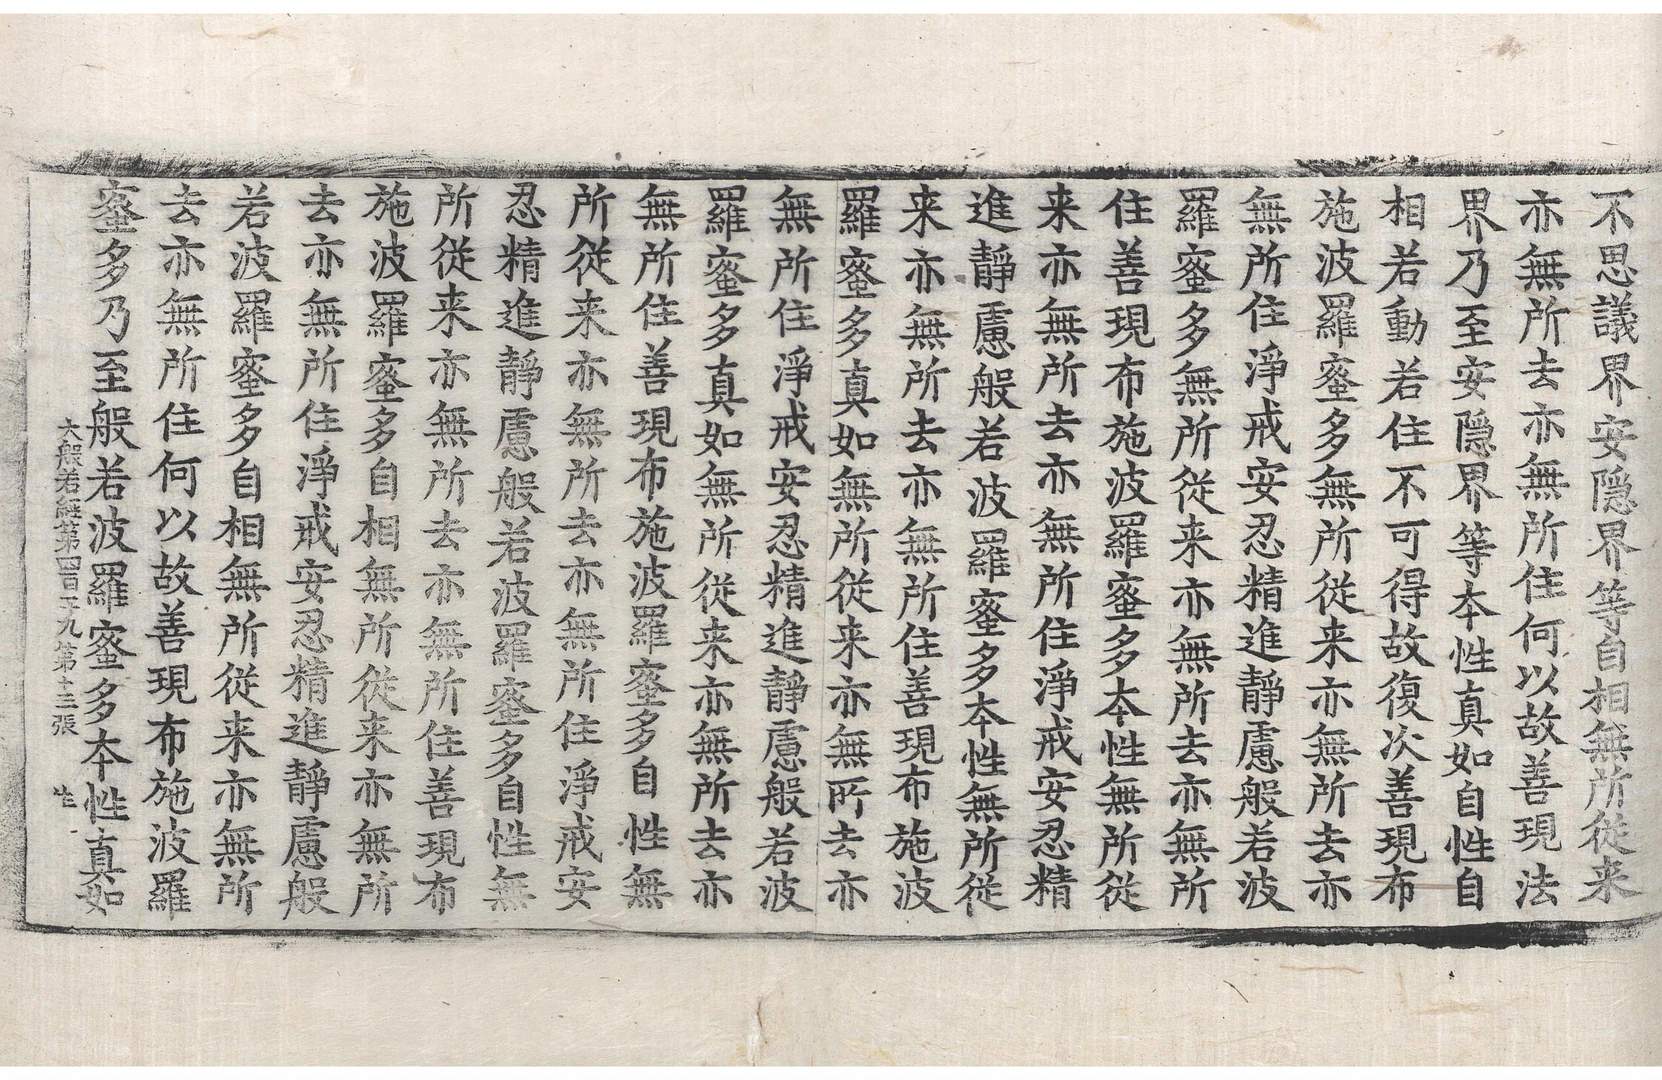 不思議界安隱界等自相無所從来
亦無所去亦無所住何以故善現法
界乃至安隱界等本性真如自性自
相若動若住不可得故復次善現布
施波羅蜜多無所從来亦無所去亦
無所住淨戒安忍精進靜慮般若波
羅蜜多無所從来亦無所去亦無所
住善現布施波羅蜜多本性無所從
来亦無所去亦無所住淨戒安忍精
進靜慮般若波羅蜜多本性無所從
来亦無所去亦無所住善現布施波
羅蜜多真如無所從来亦無所去亦
無所住淨戒安忍精進靜慮般若波
羅蜜多真如無所從来亦無所去亦
無所住善現布施波羅蜜多自性無
所從来亦無所去亦無所住淨戒安
忍精進靜慮般若波羅蜜多自性無
所從来亦無所去亦無所住善現布
施波羅蜜多自相無所從来亦無所
去亦無所住淨戒安忍精進靜慮般
若波羅蜜多自相無所從来亦無所
去亦無所住何以故善現布施波羅
蜜多乃至般若波羅蜜多本性真如
大般若經第四百一十九第十三張 生